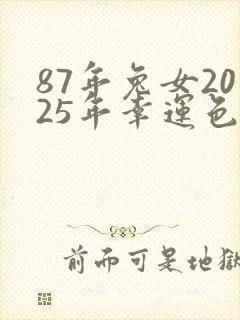 87年兔女20
25年幸運色
前而可是地獄